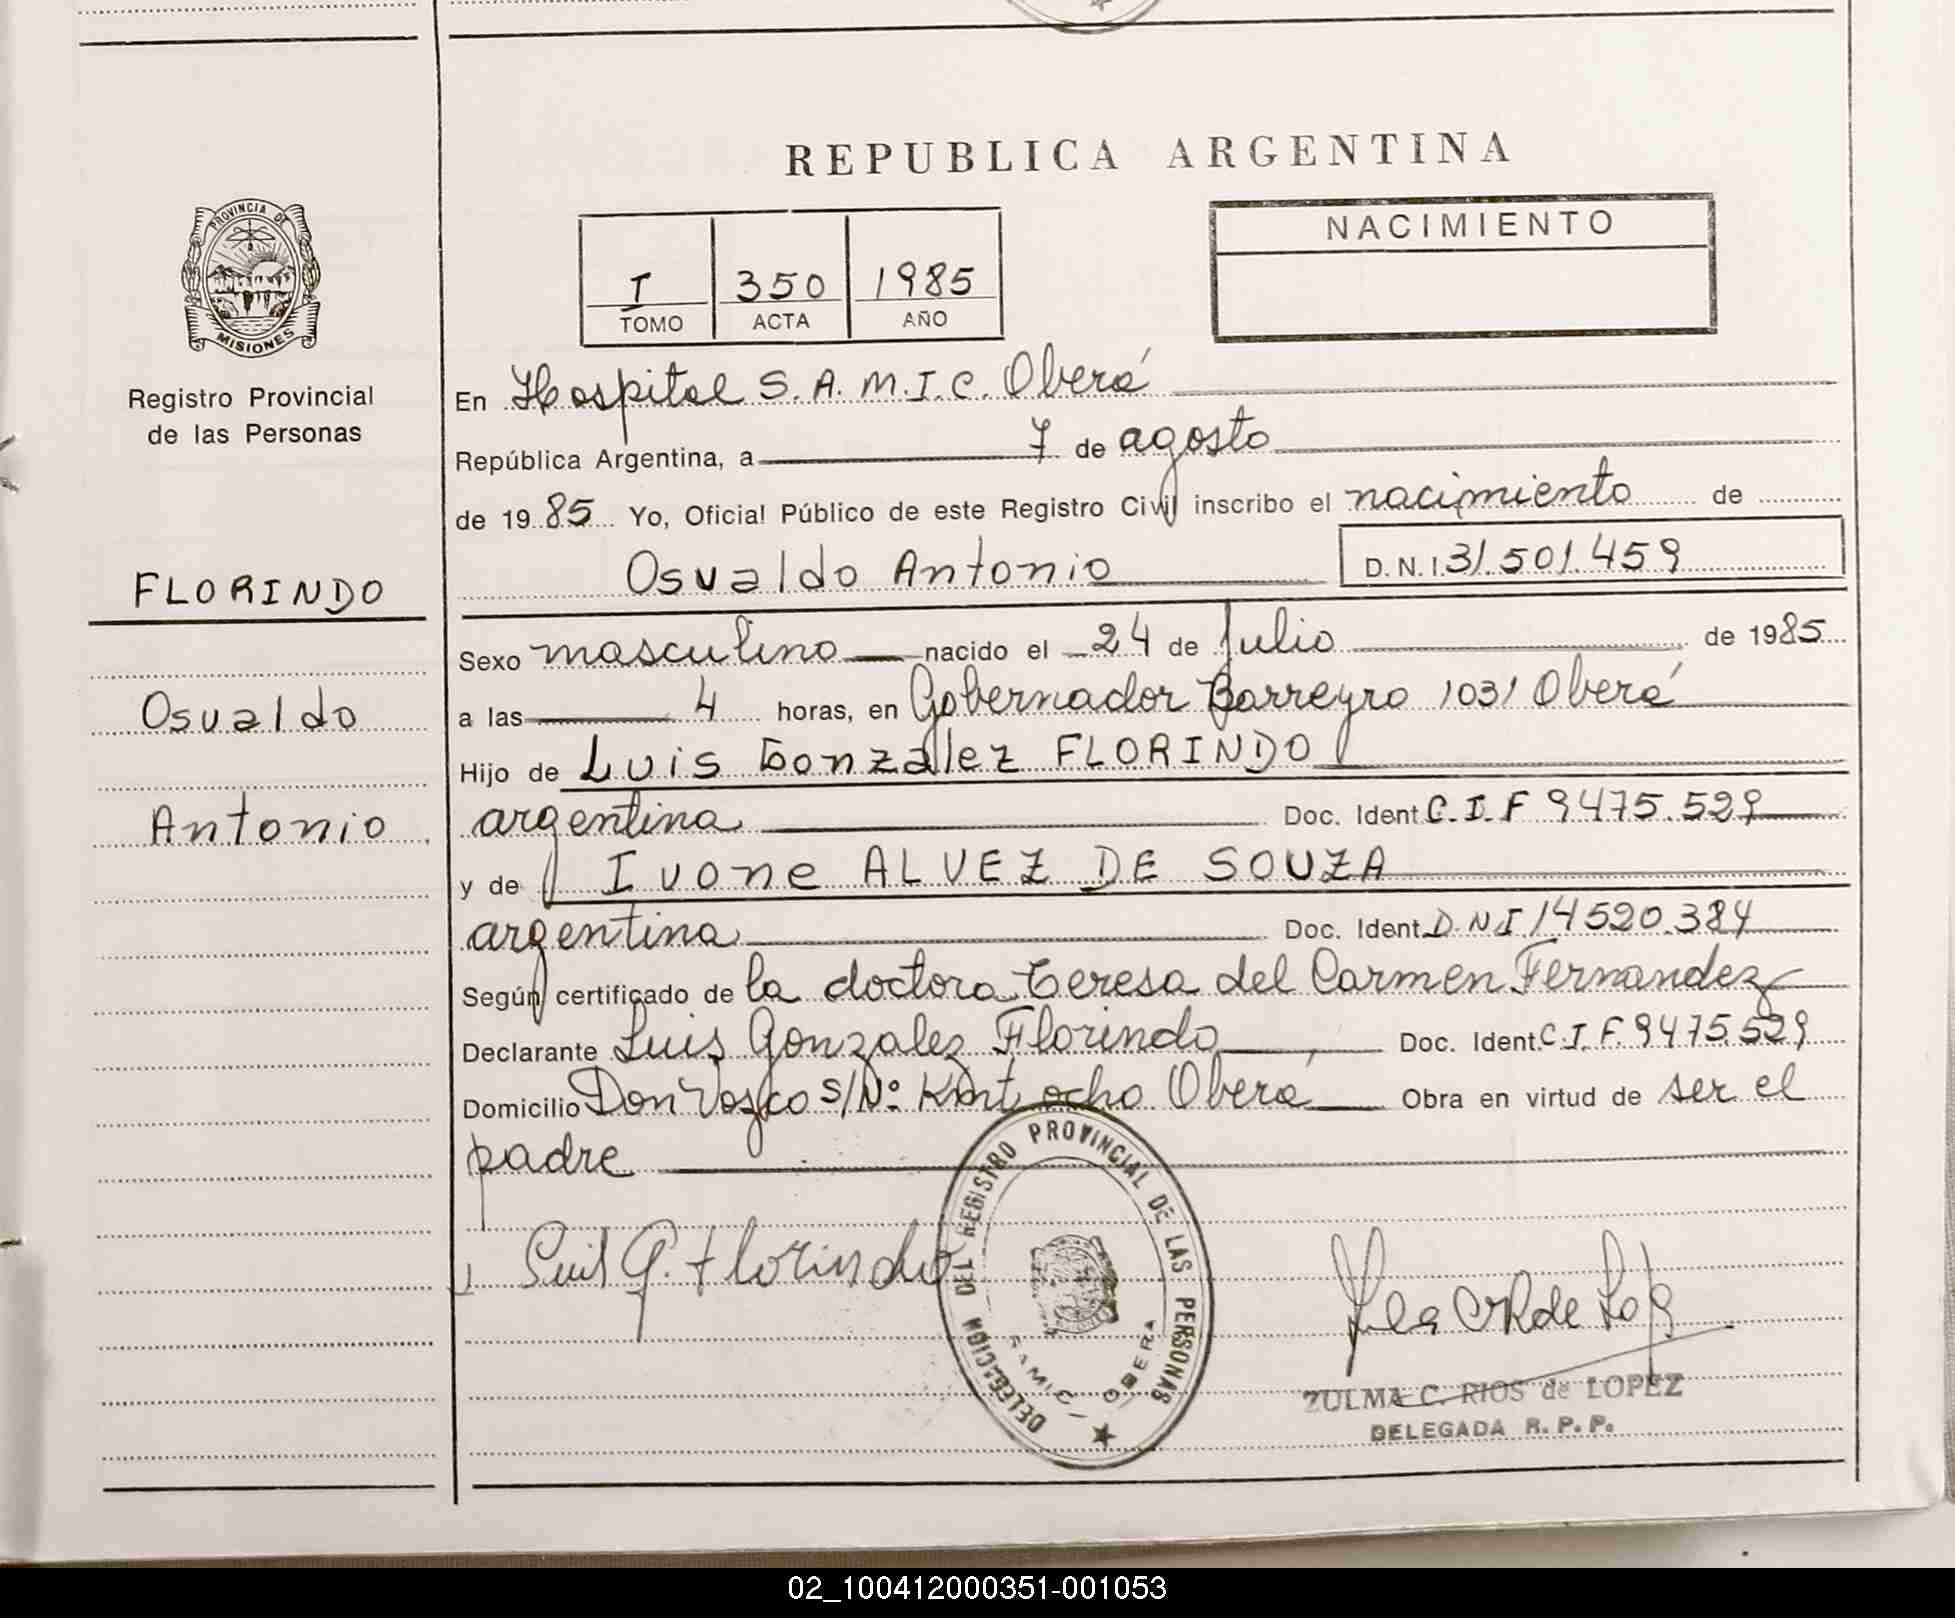 REPUBLICA ARGENTINA
PROVINCIA DE
MISIONES
Registro Provincial
de las Personas
NACIMIENTO
I 350 1985
TOMO ACTA AÑO
En Hospital S.A.M.I.C. Oberá
República Argentina, a 7 de agosto
de 1985 Yo, Oficial Público de este Registro Civil inscribo el nacimiento de
Osvaldo Antonio D.N.I. 31.501.459
FLORINDO
Osvaldo
Antonio
Sexo masculino nacido el 24 de Julio de 1985
a las 4 horas, en Gobernador Barreyro 1031 Oberá
Hijo de Luis Gonzalez FLORINDO
argentina Doc. Ident. C.I.F 9475.529
y de Ivone ALVEZ DE SOUZA
argentina Doc. Ident. D.N.I 14520.384
Según certificado de la doctora Teresa del Carmen Fernandez
Declarante Luis Gonzalez Florindo Doc. Ident. C.I.F. 9475.529
Domicilio Don Vosco S/Nº Kmt ocho Oberá Obra en virtud de ser el
padre
Luis G. Florindo
DELEGACION DEL REGISTRO PROVINCIAL DE LAS PERSONAS
SAMIC OBERA
ZULMA C. RIOS de LOPEZ
DELEGADA R.P.P.
02_100412000351-001053